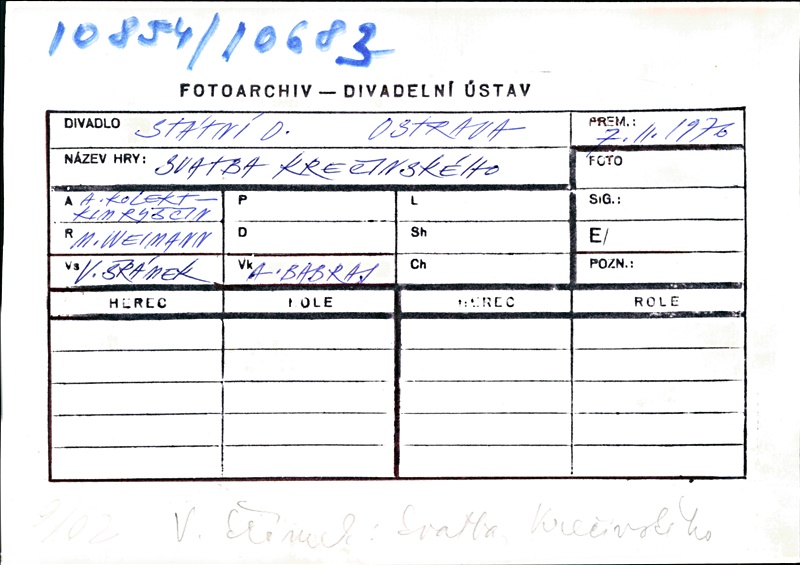 10854/10683
FOTOARCHIV — DIVADELNÍ ÚSTAV
DIVADLO STÁTNÍ D. OSTRAVA PREM.: 7. II. 1976
NÁZEV HRY: SVATBA KREČINSKÉHO FOTO
A A. KOLEKT— P L SIG.:
KIMRYŠČIN
R M. WEIMANN D Sh E/
Vs V. ŠRÁMEK Vk A. BABRAJ Ch POZN.:
HEREC ROLE HEREC ROLE
V. Šrámek: Svatba Krečinského